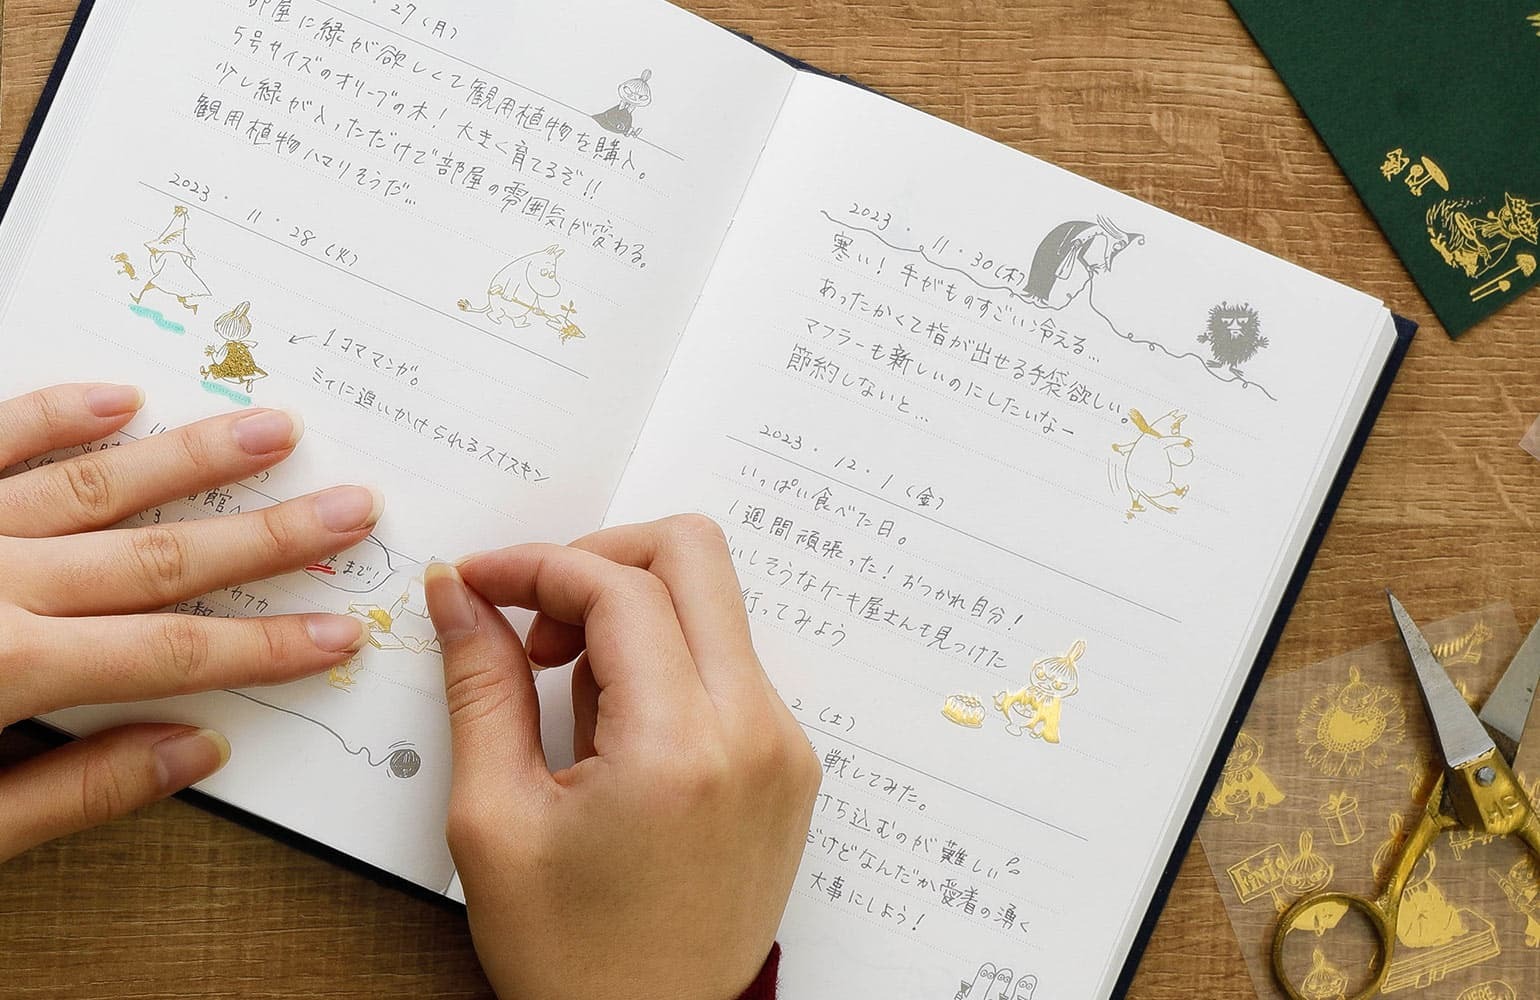 ・27（月）
部屋に緑が欲しくて観用植物を購入。
5号サイズのオリーブの木！大きく育てるぞ!!
少し緑が入っただけで部屋の雰囲気が変わる。
観用植物ハマりそうだ…
2023・11・28（火）
↙1コママンガ。
ミイに追いかけられるスナフキン
11
館へ
まで！
カフカ
2023・11・30（木）
寒い！手がものすごい冷える…
あったかくて指が出せる手袋欲しい。
マフラーも新しいのにしたいなー
節約しないと…
2023・12・1（金）
いっぱい食べた日。
1週間頑張った！おつかれ自分！
いしそうなケーキ屋さんも見つけた
行ってみよう
2（土）
戦してみた。
打ち込むのが難しい
だけどなんだか愛着の湧く
大事にしよう！